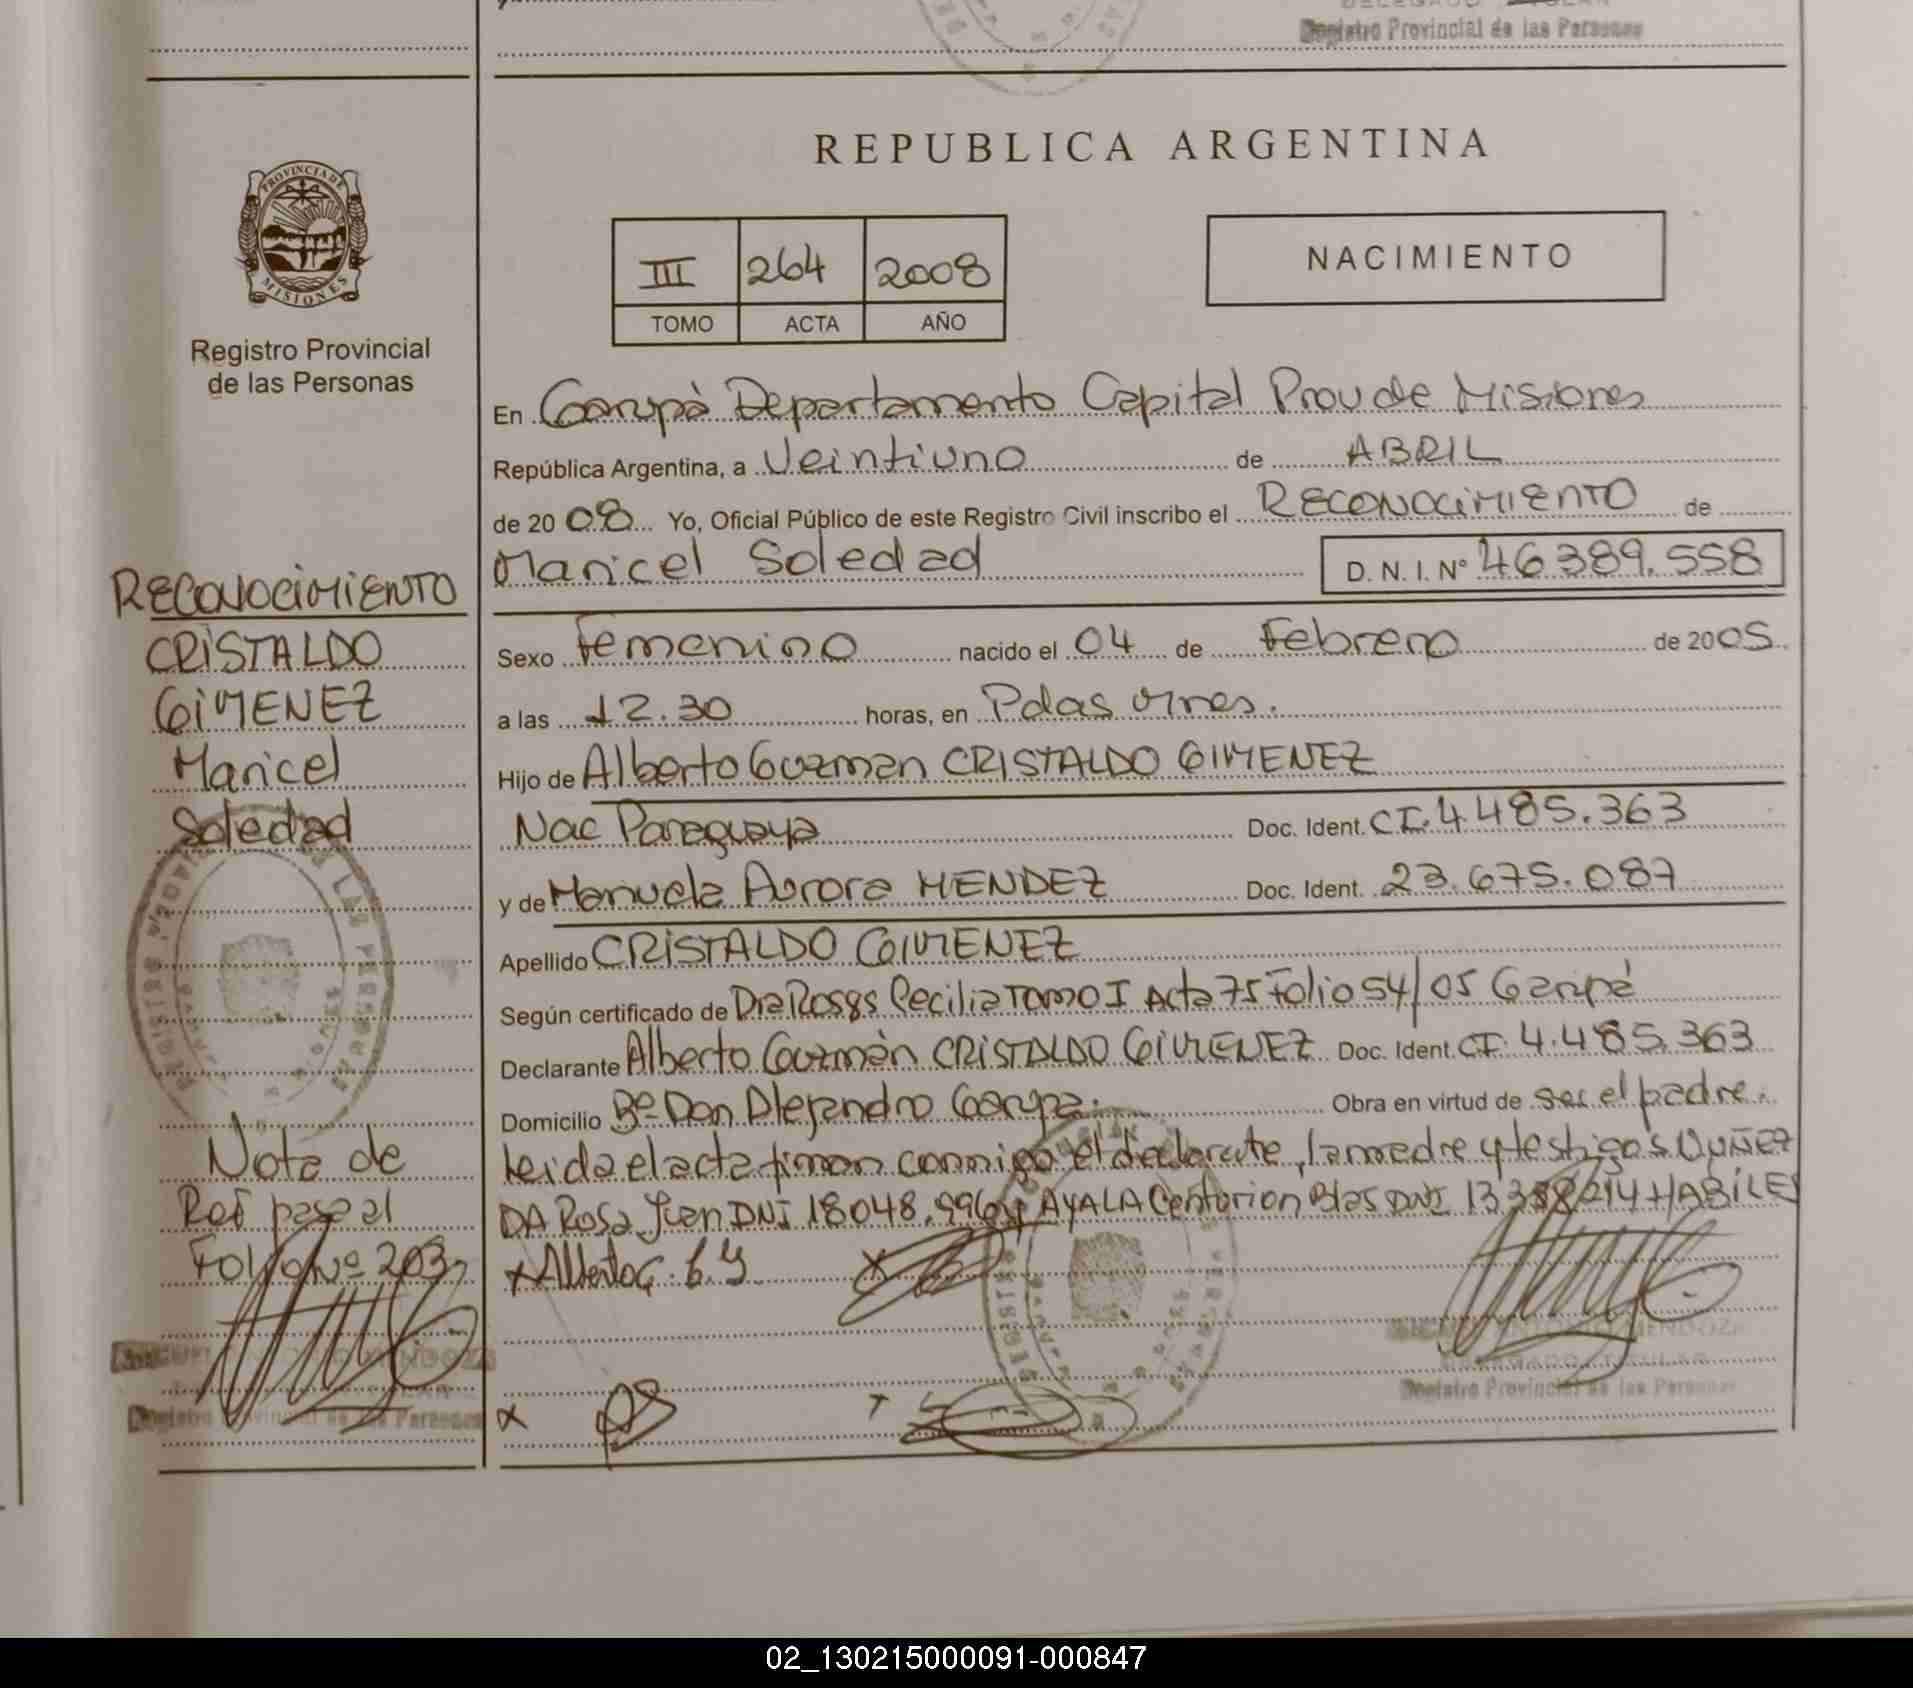 Registro Provincial de las Personas
REPUBLICA ARGENTINA
PROVINCIA DE MISIONES
Registro Provincial
de las Personas
III 264 2008
TOMO ACTA AÑO
NACIMIENTO
En Garupà Departamento Capital Prov de Misiones
República Argentina, a Veintiuno de ABRIL
de 2008 Yo, Oficial Público de este Registro Civil inscribo el RECONOCIMIENTO de
Maricel Soledad D. N. I. Nº 46389.558
Sexo Femenino nacido el 04 de Febrero de 2005
a las 12.30 horas, en Pdas Mnes.
Hijo de Alberto Guzman CRISTALDO GIMENEZ
Nac Paraguaya Doc. Ident. CI.4.485.363
y de Manuela Aurora MENDEZ Doc. Ident. 23.675.087
Apellido CRISTALDO GIMENEZ
Según certificado de Dra Rosas Cecilia TOMO I Acta 75 Folio 54/05 Garupá
Declarante Alberto Guzmán CRISTALDO GIMENEZ Doc. Ident. CI. 4.485.363
Domicilio Bº Don Alejandro Garupa. Obra en virtud de ser el padre.
Leida el acta firman conmigo el declarate, la madre y testigos NUÑEZ
DA Rosa Juan DNI 18048.996 y AYALA Centurion Blas DNI 13 358 214 HABILES
RECONOCIMIENTO
CRISTALDO
GIMENEZ
Maricel
Soledad
Nota de
Ref pasa al
Folio Nº 203
x Alberto C. G. G
MENDOZA
DELEGADO TITULAR
Registro Provincial de las Personas
MENDOZA
Registro Provincial de las Personas
02_130215000091-000847